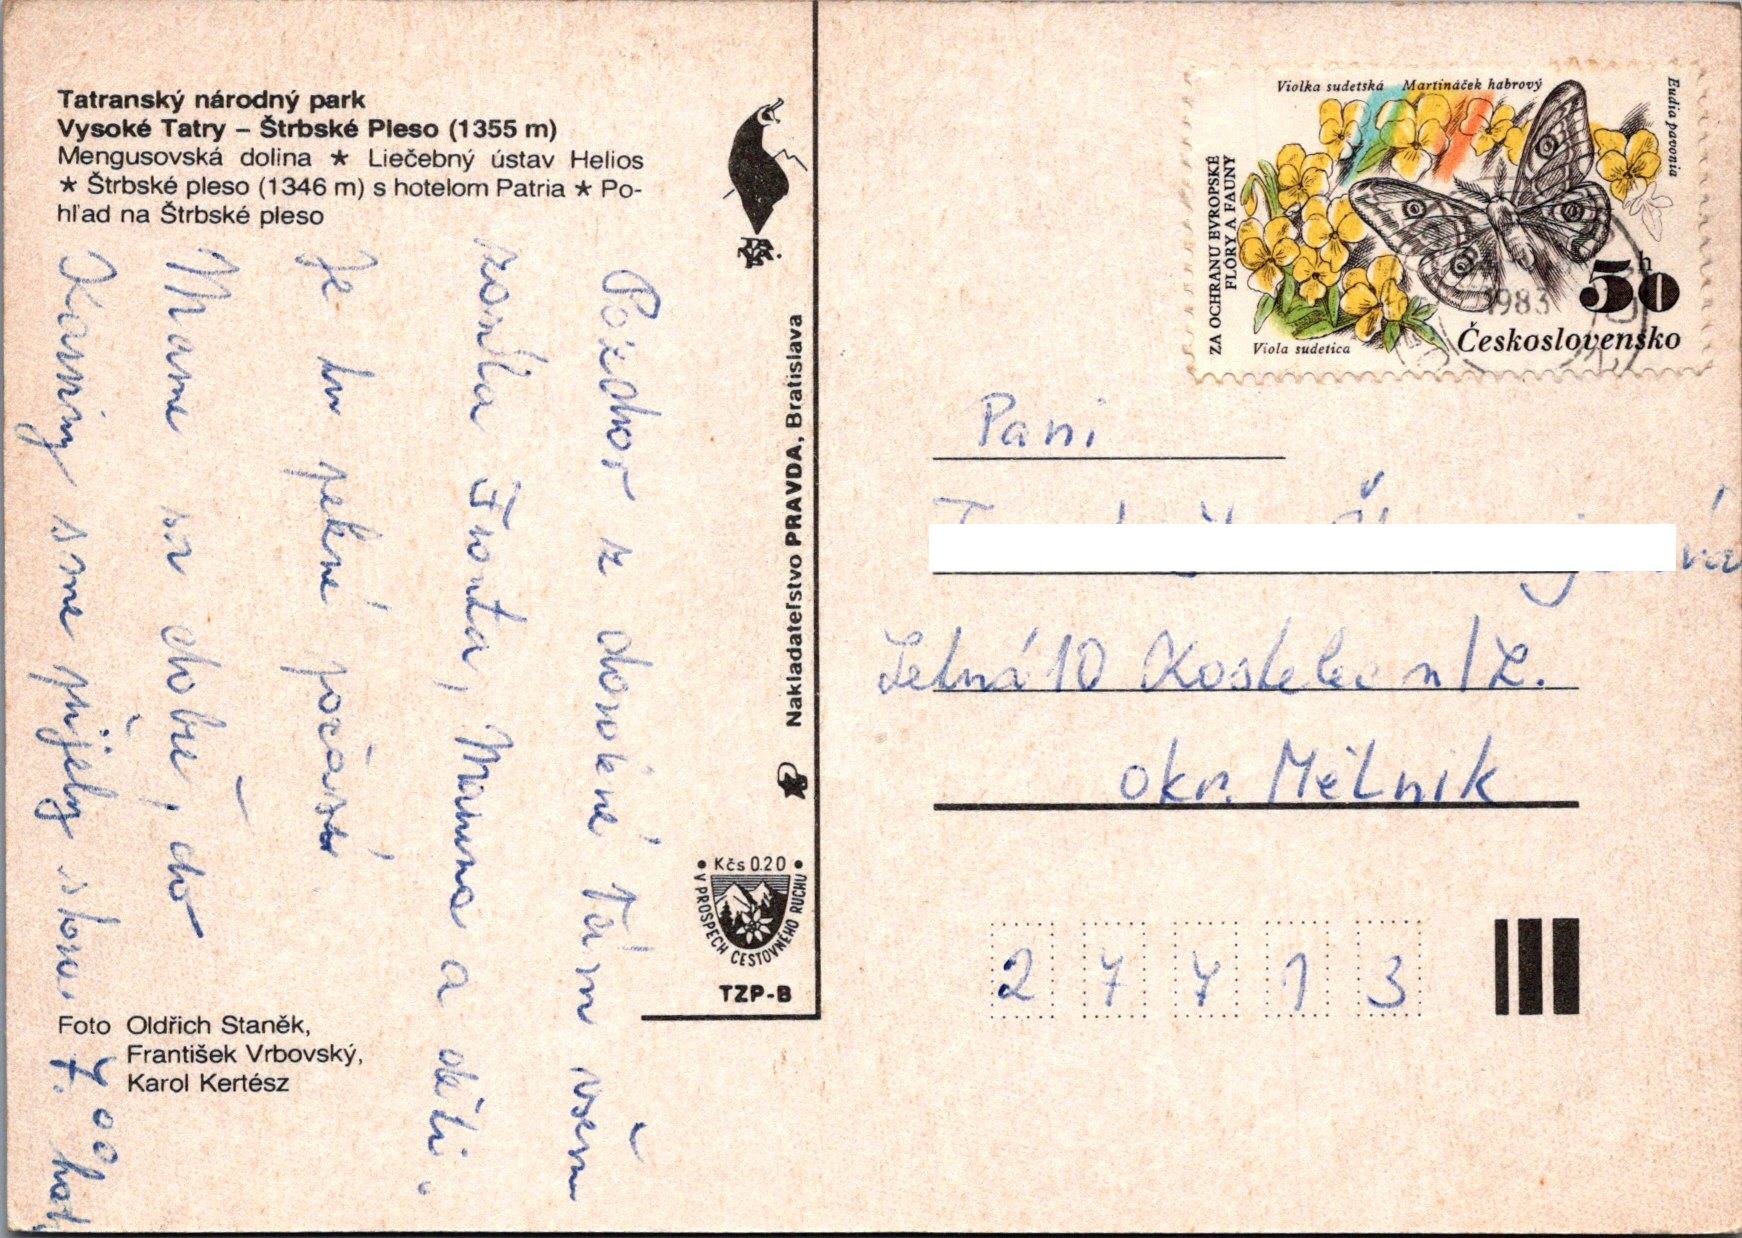 Tatranský národný park
Vysoké Tatry – Štrbské Pleso (1355 m)
Mengusovská dolina ★ Liečebný ústav Helios
★ Štrbské pleso (1346 m) s hotelom Patria ★ Po-
hľad na Štrbské pleso
Pozdrav z dovolené Vám všem
Fronta, Mamma a děti.
Je tu pekné počasí
Máme sa dobře, do
sme přijely
7.00 hod
Foto Oldřich Staněk,
František Vrbovský,
Karol Kertész
Nakladateľstvo PRAVDA, Bratislava
• Kčs 0.20 •
V PROSPECH CESTOVNÉHO RUCHU
TZP-B
Violka sudetská Martináček habrový
Eudia pavonia
ZA OCHRANU EVROPSKÉ
FLÓRY A FAUNY
Viola sudetica
50 h
Československo
1983
Paní
Letná 10 Kostelec n/L.
okr. Mělník
27713